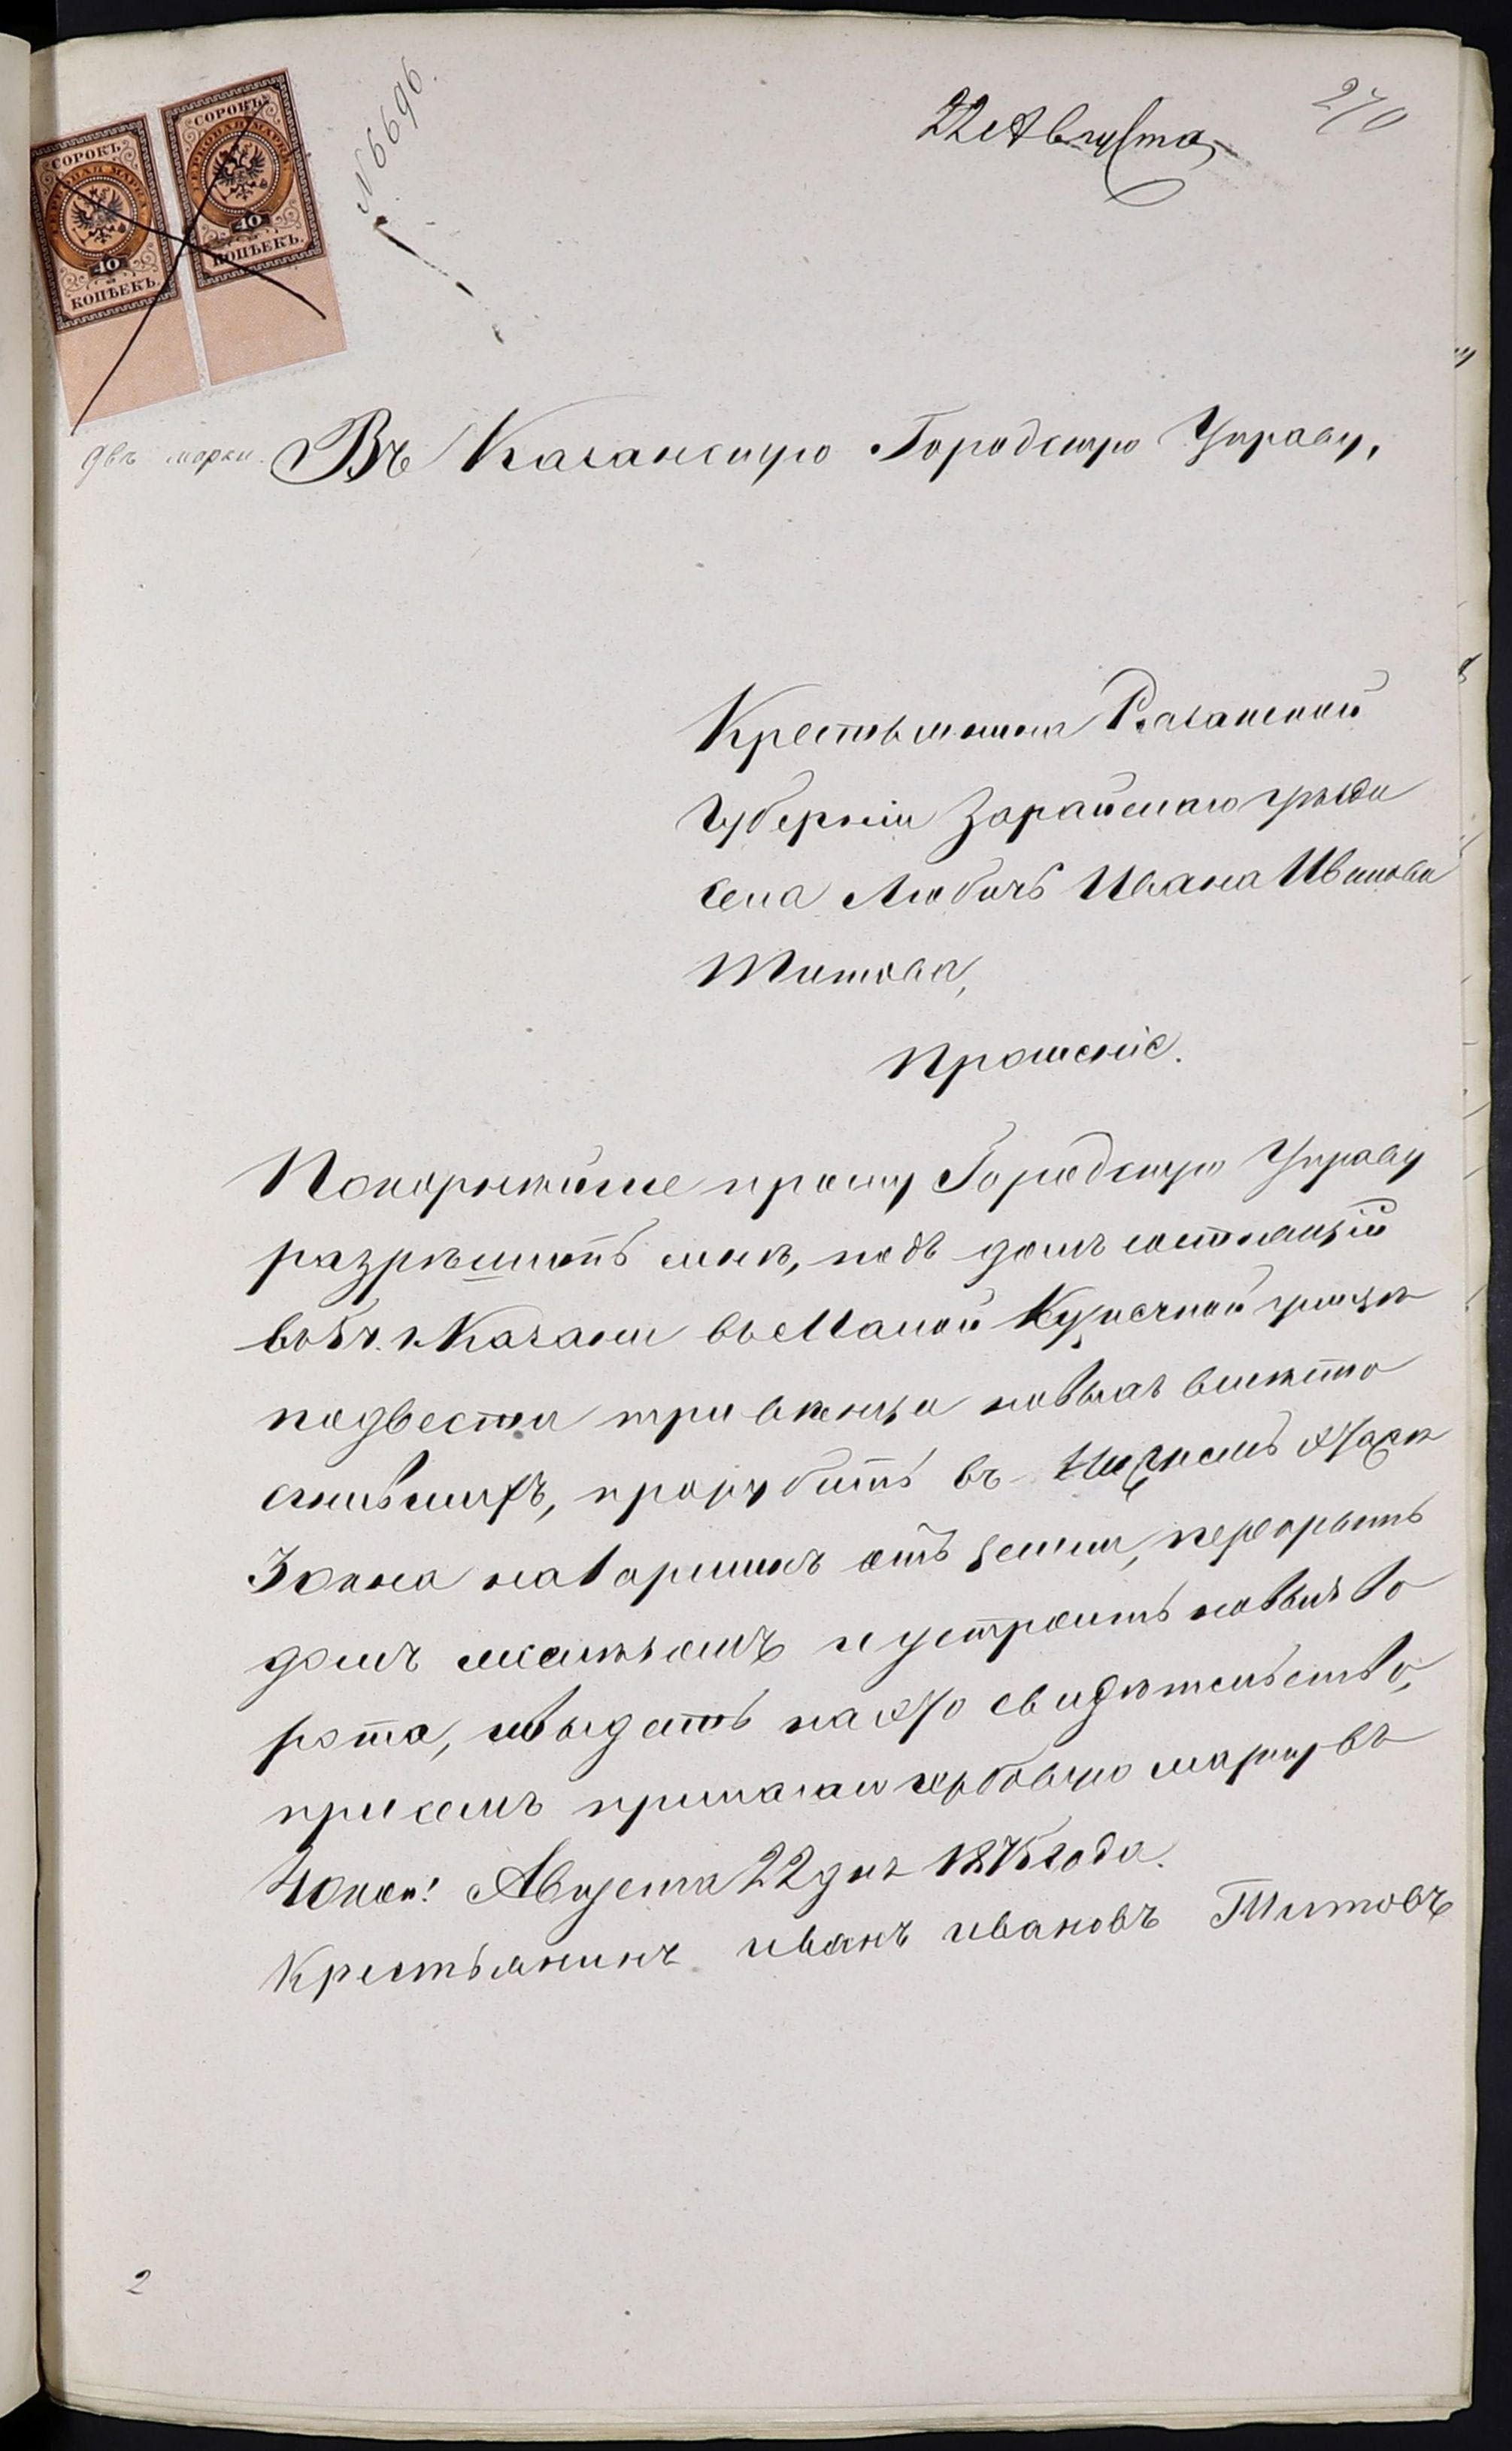 270
22 Августа
№ 6696.
СОРОКЪ
ГЕРБОВАЯ МАРКА
40
КОПѢЕКЪ.
СОРОКЪ
ГЕРБОВАЯ МАРКА
40
КОПѢЕКЪ.
двѣ марки.
Въ Казанскую Городскую Управу,
Крестьянина Рязанской
Губерніи Зарайскаго уѣзда
села Любичь Ивана Иванова
Титова,
Прошеніе.
Покорнѣйше прошу Городскую Управу
разрѣшить мнѣ, подъ домъ состоящій
въ 5 ч. г. Казани въ Малой улицѣ
подвести три венца новыхъ вмѣсто
сгнившихъ, прорубить въ Нижнемъ этажѣ
3 окна на аршинъ отъ земли, перекрыть
домъ желѣзомъ и устроить новыя во
рота, и выдать на это свидѣтельство,
при семъ прилагаю гербовую марку въ
40 коп! Августа 22 дня 1875 года.
Крестьянинъ иванъ ивановъ Титовъ
2